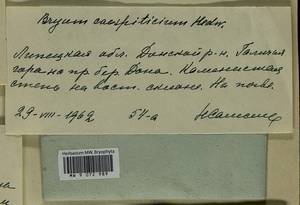 Bryum caespiticium Hedw.
Липецкая обл. Донской р-н. Галичья
гора на пр. бер. Дона. Каменистая
степь на вост. склоне. На почве.
29-VIII-1962 54-а
Herbarium MW, Bryophyta
MW 9 072 989